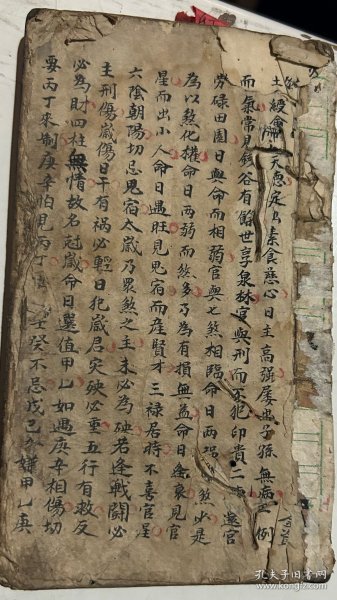 土繳會　天惠定乃素食慈心日主高强屡出子孫無病　例
而氣常見錢谷有餘世享泉林官與刑而不犯印貴二　　遂宮
勞碌田園日與命而相弱官與七煞相臨命日両　　煞少是
為以煞化權命日両弱而煞多乃為有損無益命日逢衰見官
星而出小人命日遇旺見鬼宿而產賢才三禄居時不喜官星
六陰朝陽切忌鬼宿太歲乃衆煞之主未必為殃若逢戰鬪必
主刑傷歲傷日干有禍必輕日犯歲君灾殃必重五行有救反
必為財四柱無情故名尅歲命日選值甲乙如遇庚辛相傷切
要丙丁來制庚辛怕見丙丁　　壬癸不忌戊己　嫌甲乙庚
孔夫子旧书网